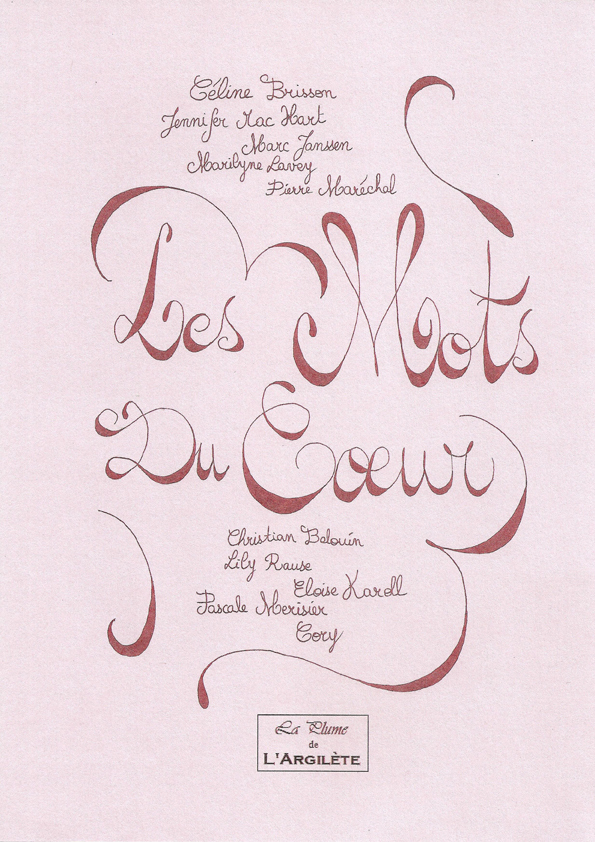 Céline Brisson
Jennifer Mac Hart
Marc Janssen
Marilyne Lavey
Pierre Maréchal
Les Mots
Du Coeur
Christian Belouin
Lily Rause
Eloïse Karoll
Pascale Merisier
Cory
La Plume
de
L'ARGILÈTE